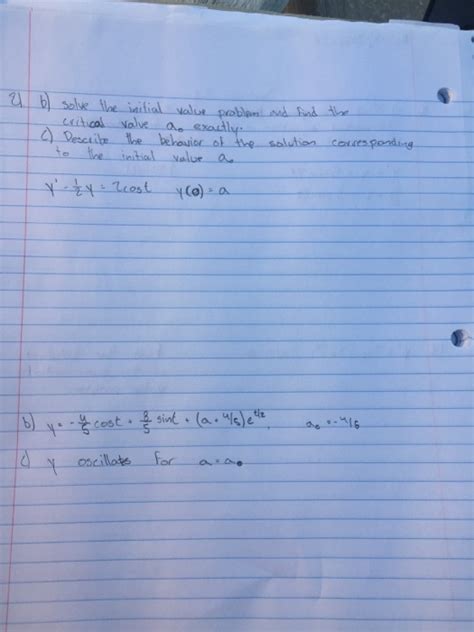 21 b) solve the initial value problem and find the
critical value a₀ exactly.
c) Describe the behavior of the solution corresponding
to the initial value a₀
y' - ½y = 2cost y(0) = a
b) y = -4/5 cost + 8/5 sint + (a + 4/5)e^(t/2), a₀ = -4/5
c) y oscillates for a = a₀